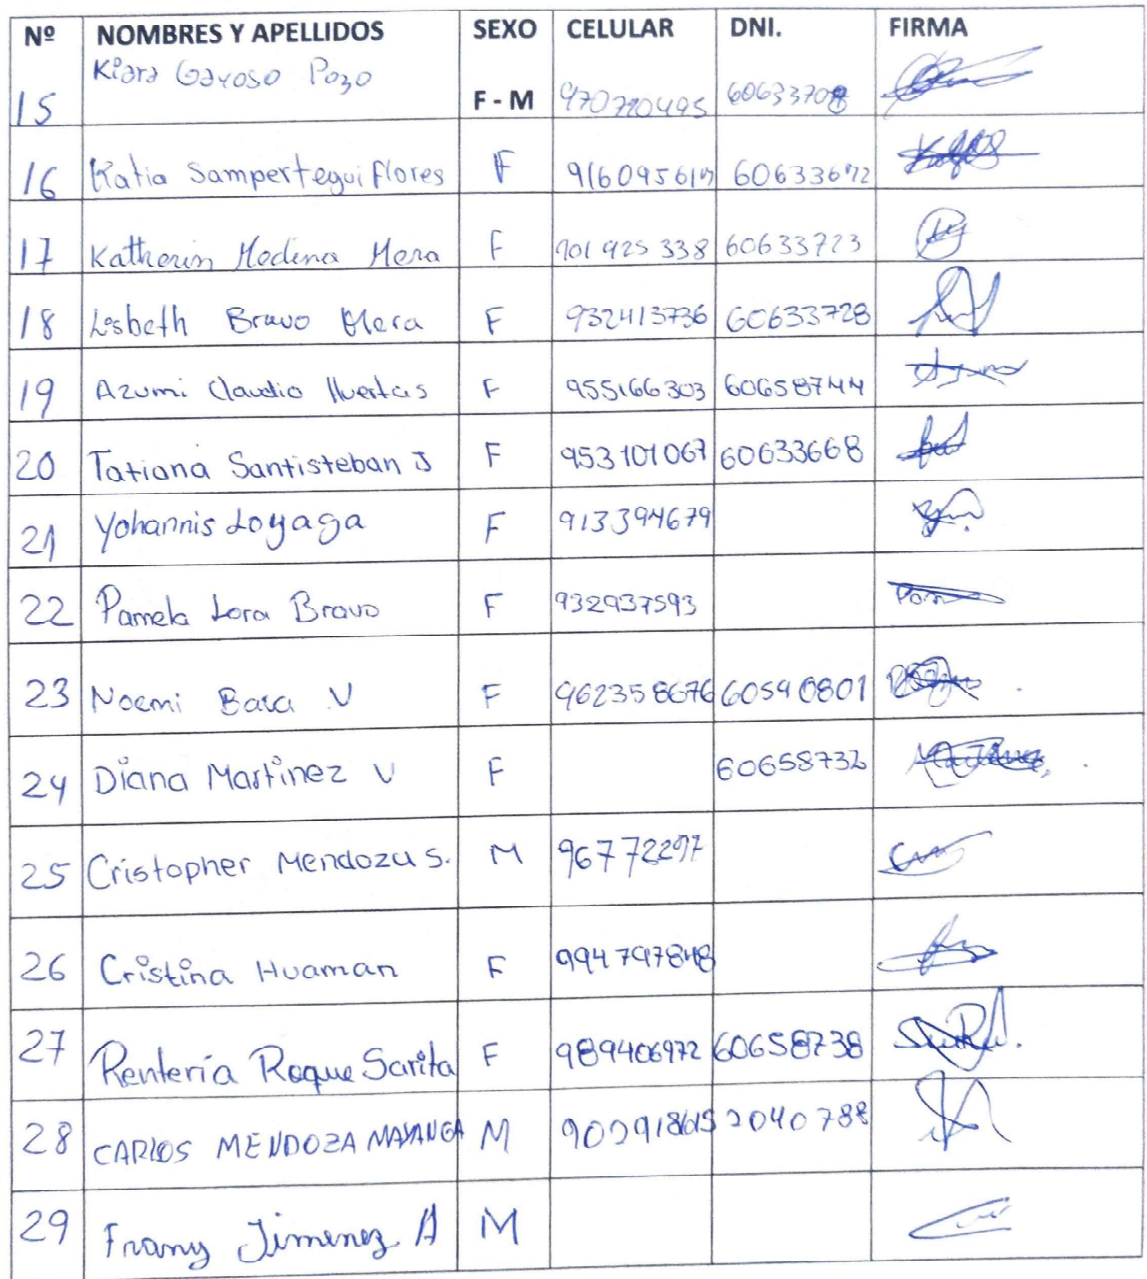 Nº NOMBRES Y APELLIDOS SEXO CELULAR DNI. FIRMA
15 Kiara Gayoso Pozo F - M 970720495 60633708
16 Katia Sampertegui flores F 60633672
17 Katherin Medina Mera F 901 925 338 60633723
18 Lisbeth Bravo Mera F 932413736 60633728
19 Azumi Claudio Huertas F 955166303 60658744
20 Tatiana Santisteban J F 953101067 60633668
21 Yohannis Loyaga F 913394679
22 Pamela Lora Bravo F 932937593
23 Noemi Baca V F 962358676 60590801
24 Diana Martinez V F 60658732
25 Cristopher Mendoza S. M 96772297
26 Cristina Huaman F 994797848
27 Rentería Roque Sarita F 989406972 60658738
28 CARLOS MENDOZA MAYANGA M 2040788
29 Frany Jimenez A M